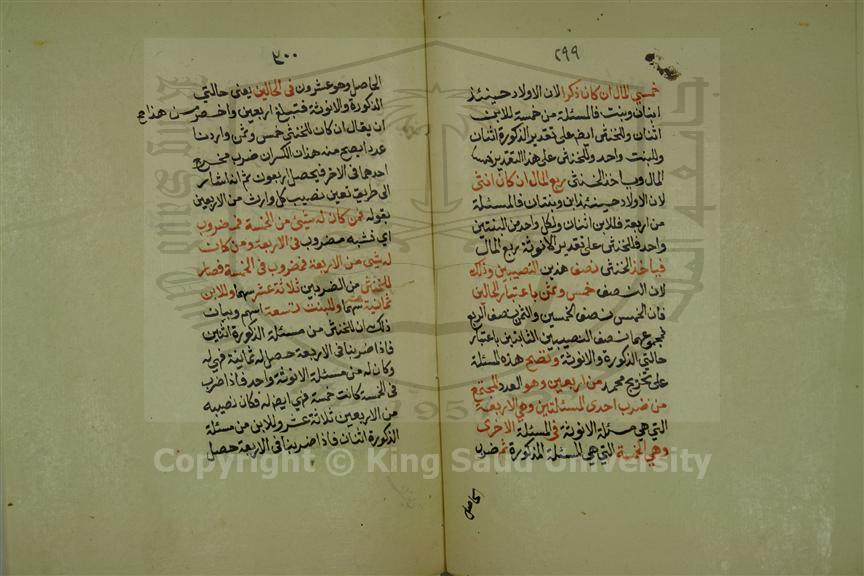 ٢٩٩
خمسي المال ان كان ذكرا لان الاولاد حينئذ
ابنان وبنت فالمسئلة من خمسة للابن
اثنان وللخنثى ايضا على تقدير الذكورة اثنان
وللبنت واحد وللخنثى على هذا التقدير خمسا
المال وياخذ الخنثى ربع المال ان كان انثى
لان الاولاد حينئذ ابن وبنتان فالمسئلة
من اربعة فللابن اثنان ولكل واحد من البنتين
واحد فالخنثى على تقدير الانوثة ربع المال
فياخذ الخنثى نصف هذين النصيبين وذلك
لان النصف خمس وثمن باعتبار الحالين
فان الخمس نصف الخمسين والثمن نصف الربع
فمجموعهما نصف النصيبين الثابتين باعتبار
حالتي الذكورة والانوثة وتصح هذه المسئلة
على تخريج محمد من اربعين وهو العدد المجتمع
من ضرب احدى المسئلتين وهي الاربعة
التي هي مسئلة الانوثة في المسئلة الاخرى
وهي الخمسة التي هي المسئلة المذكورة ثم ضرب
الحاصل
٣٠٠
الحاصل وهو عشرون في الحالين يعني حالتي
الذكورة والانوثة فتبلغ اربعين واخصر من هذا
ان يقال ان كان للخنثى خمس وثمن واردنا
عددا يصح منه هذان الكسران ضرب مخرج
احدهما في الاخر فيحصل اربعون ثم انه اشار
الى طريق تعين نصيب كل وارث من الاربعين
بقوله فمن كان له شيئ من الخمسة فمضروب
اي نشبه مضروب في الاربعة ومن كانت
له شئ من الاربعة فمضروب في الخمسة فصار
للخنثى من الضربين ثلاثة عشر سهما وللابن
ثمانية سهما وللبنت تسعة اسهم وبيان
ذلك ان للخنثى من مسئلة الذكورة اثنين
فاذا ضربنا في الاربعة حصل له ثمانية فهي له
وكان له من مسئلة الانوثة واحد فاذا ضرب
في الخمسة كانت خمسة فهي ايضا له فكان نصيبه
من الاربعين ثلاثة عشر وللابن من مسئلة
الذكورة اثنان فاذا ضربنا في الاربعة حصل
Copyright © King Saud University